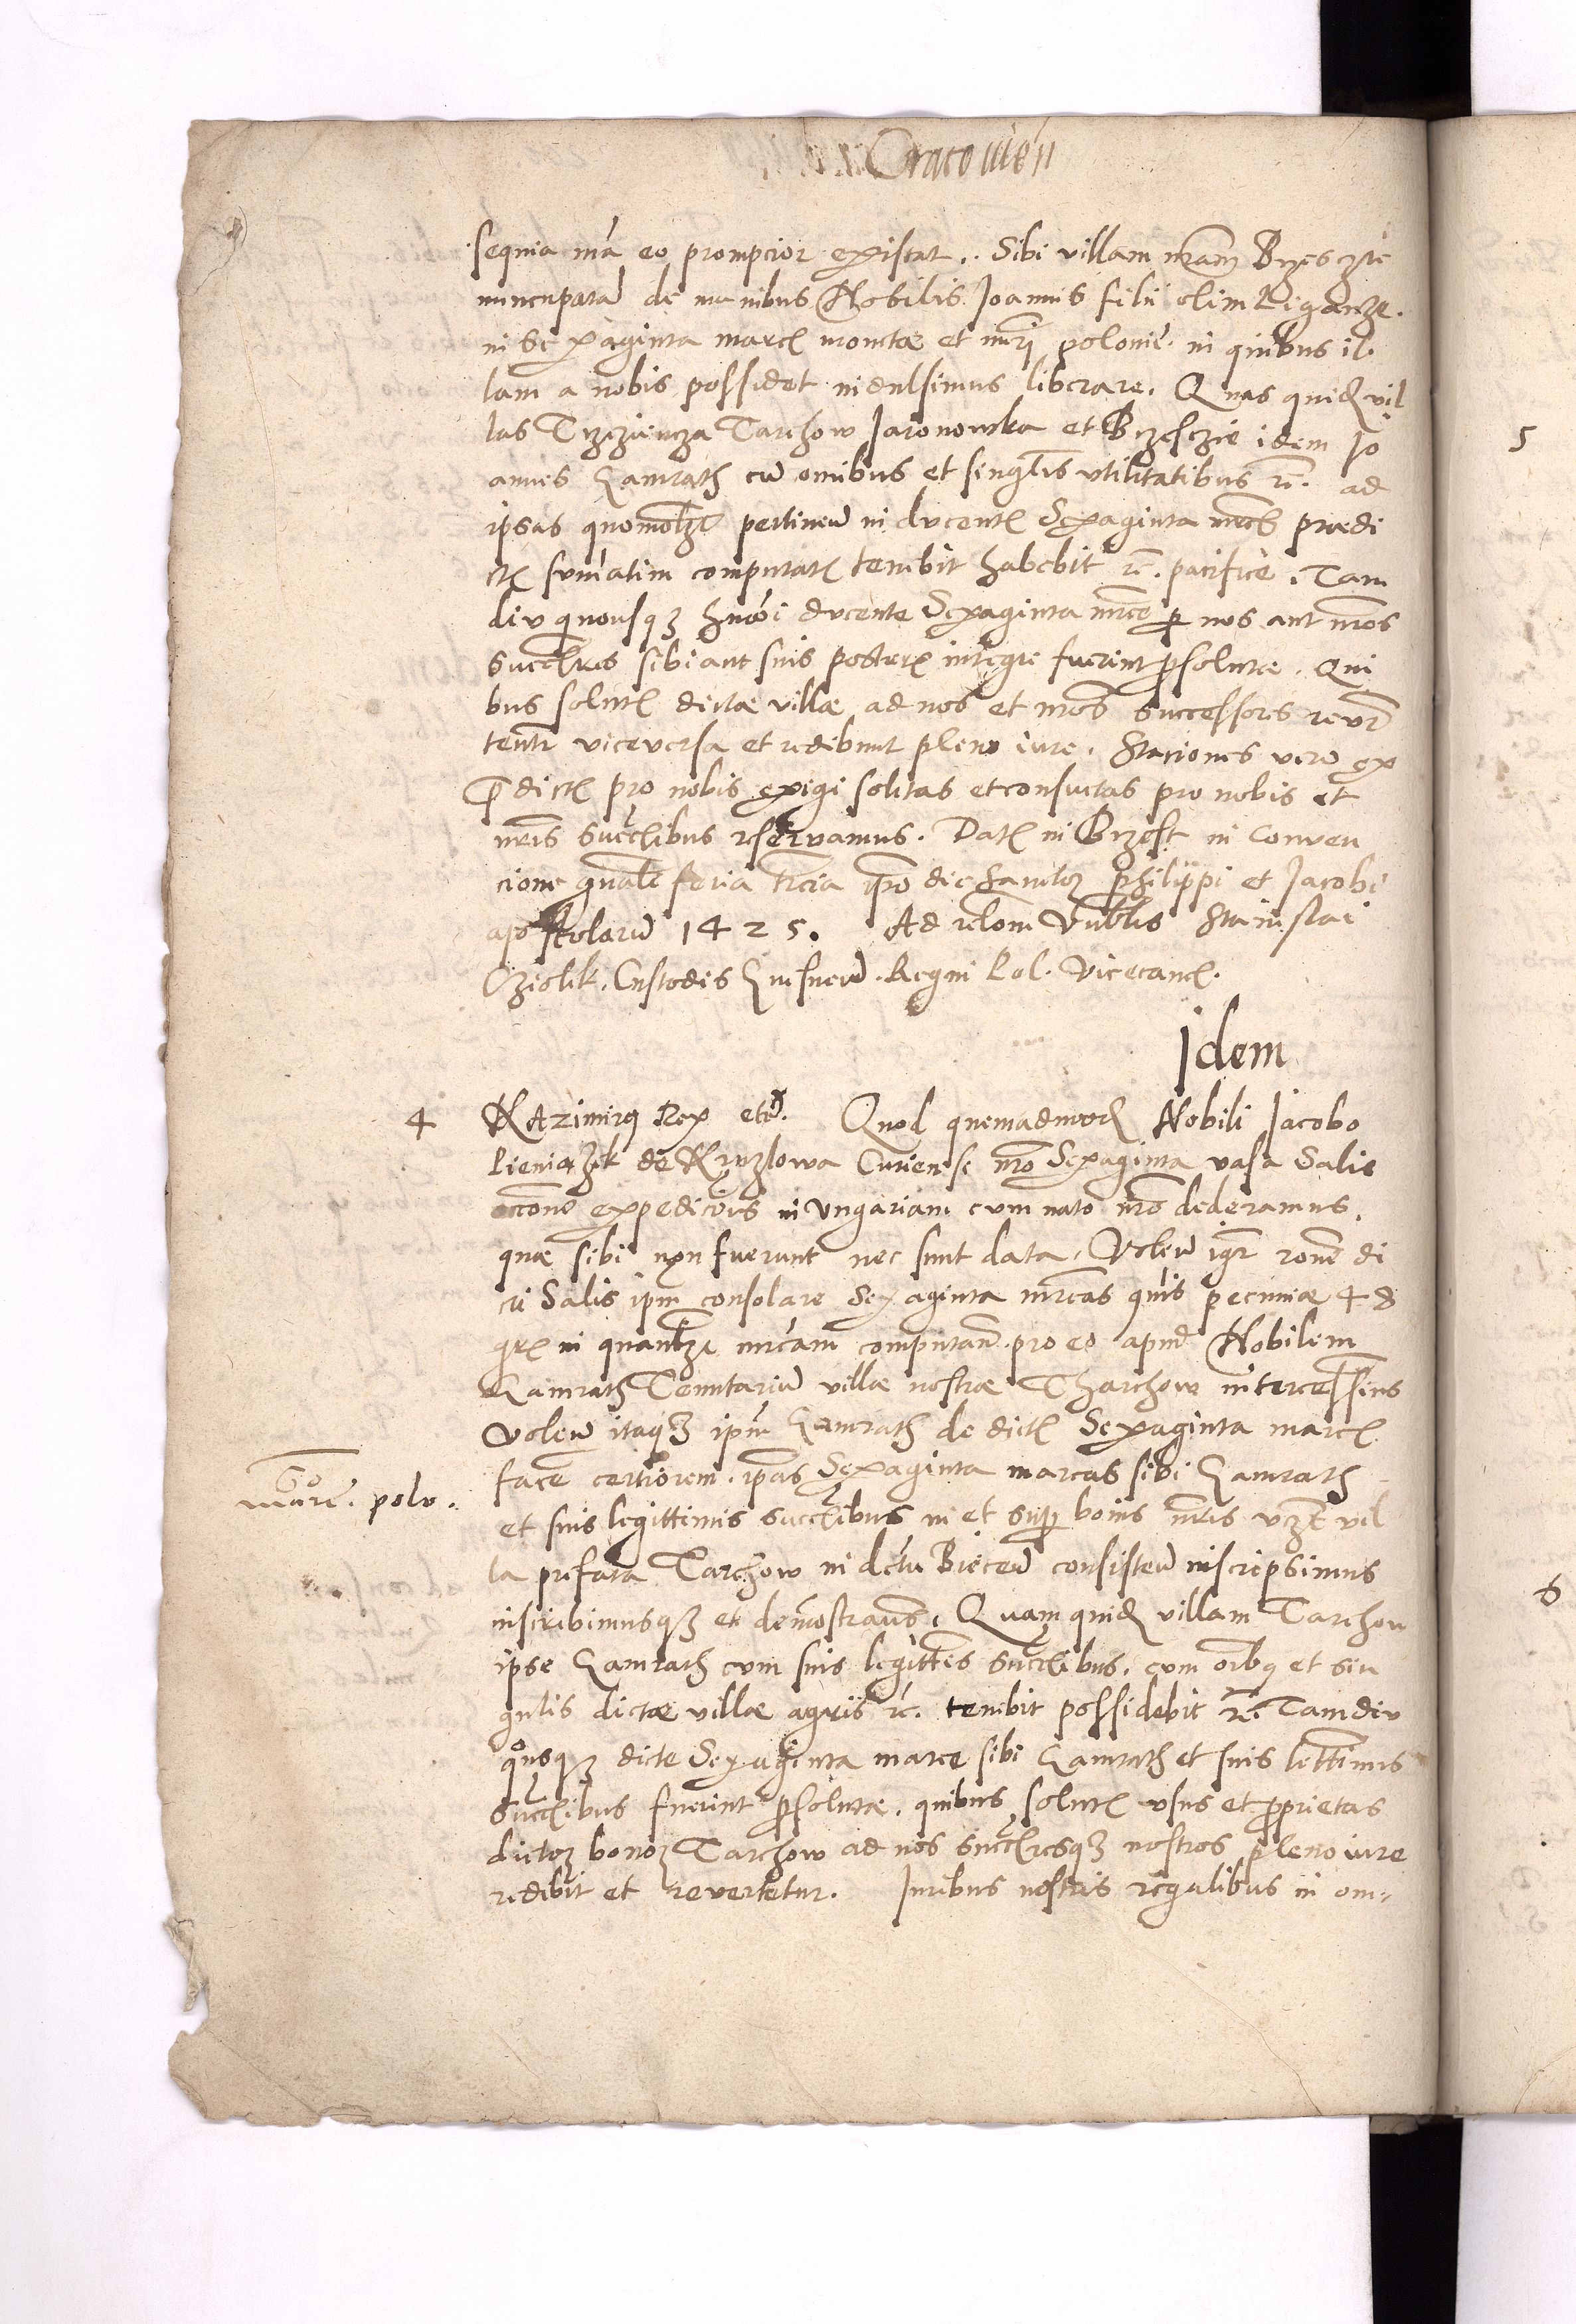 Cracovień
sequia nrã eo prompcior existat. Sibi villam nrãm Brzescztie
nuncupatã de manibus Nobilis Joannis filii olim Liganze.
in Sexaginta marc moncta et nuri polonic. in quibus il.
lam a nobis possidet indulsimus liberare. Quas quid vil
las Trzczincza Tarchow Jaronowka et Brzesczie idem Jo
annes Gamrath cũ omibus et singlis vtilitatibus rc. ad
ipsas quomolzt pertineñ in ducent Sexaginta mrc praedi
ct sumatim computat tenebit habebit rc. pacifice. Tam
div quousq3 hmoi ducente Sexaginta mrce p nos aut nros
succres sibi aut suis poster integre fuerint psolute. Qui
bus solut dictae villae ad nos et nros successores revr
tentr viceversa et redibunt pleno iure. Staciones vero ex
pdict pro nobis exigi solitas et consuetas pro nobis et
nris succibus reservamus. Dat in Brzest in Conven
cione gnali feria trcia ipo die Sanctoz Philippi et Jacobi
apostolorũ 1425. Ad relom Vnblis Stanislai
Cziolek. Custodis Gnesneñ. Regni Pol. Vicecanc.
Idem
4 KAzimirg Rex etc. Quod quemadmod Nobili Jacobo
Pieniazek de Kruzlowa Curiense nro Sexaginta vasa Salis
rccone expedicois in Vngariam cum nato nro dederamus.
quae sibi non fuerunt nec sunt data. Voleñ igr rone di
cti Salis ipm consolare Sexaginta mrcas quis pecuniae 48
gr in quanlzt mrcam computañ. pro eo apud Nobilem
Gamrath Tenutariũ villae nostrae Tharchow intercessims
Voleñ itaq3 ipm Gamrath de dict Sexaginta marc
face certiorem. ipas Sexaginta marcas sibi Gamrath
60 murc. polo.
et suis legittimis succibus in et sup bonis nris vzt vil
la prefata Tarchow in dctu Bieceñ consisteñ inscripsimus
inscribimusq3 et demostraus. Quam quid villam Tarchow
ipse Gamrath cum suis legittis succibus. cum oibg et sin
gulis dictae villae agris rc. tenebit possidebit rc. Tamdiv
quosq3 dicte Sexaginta marce sibi Gamrath et suis lettimis
Succibus fuerint psolutae. quibus solut vsus et pprietas
dictoz bonoz Tarchow ad nos succresq3 nostros pleno iure
redibit et revertetur. Juribus nostris regalibus in om-
5
6